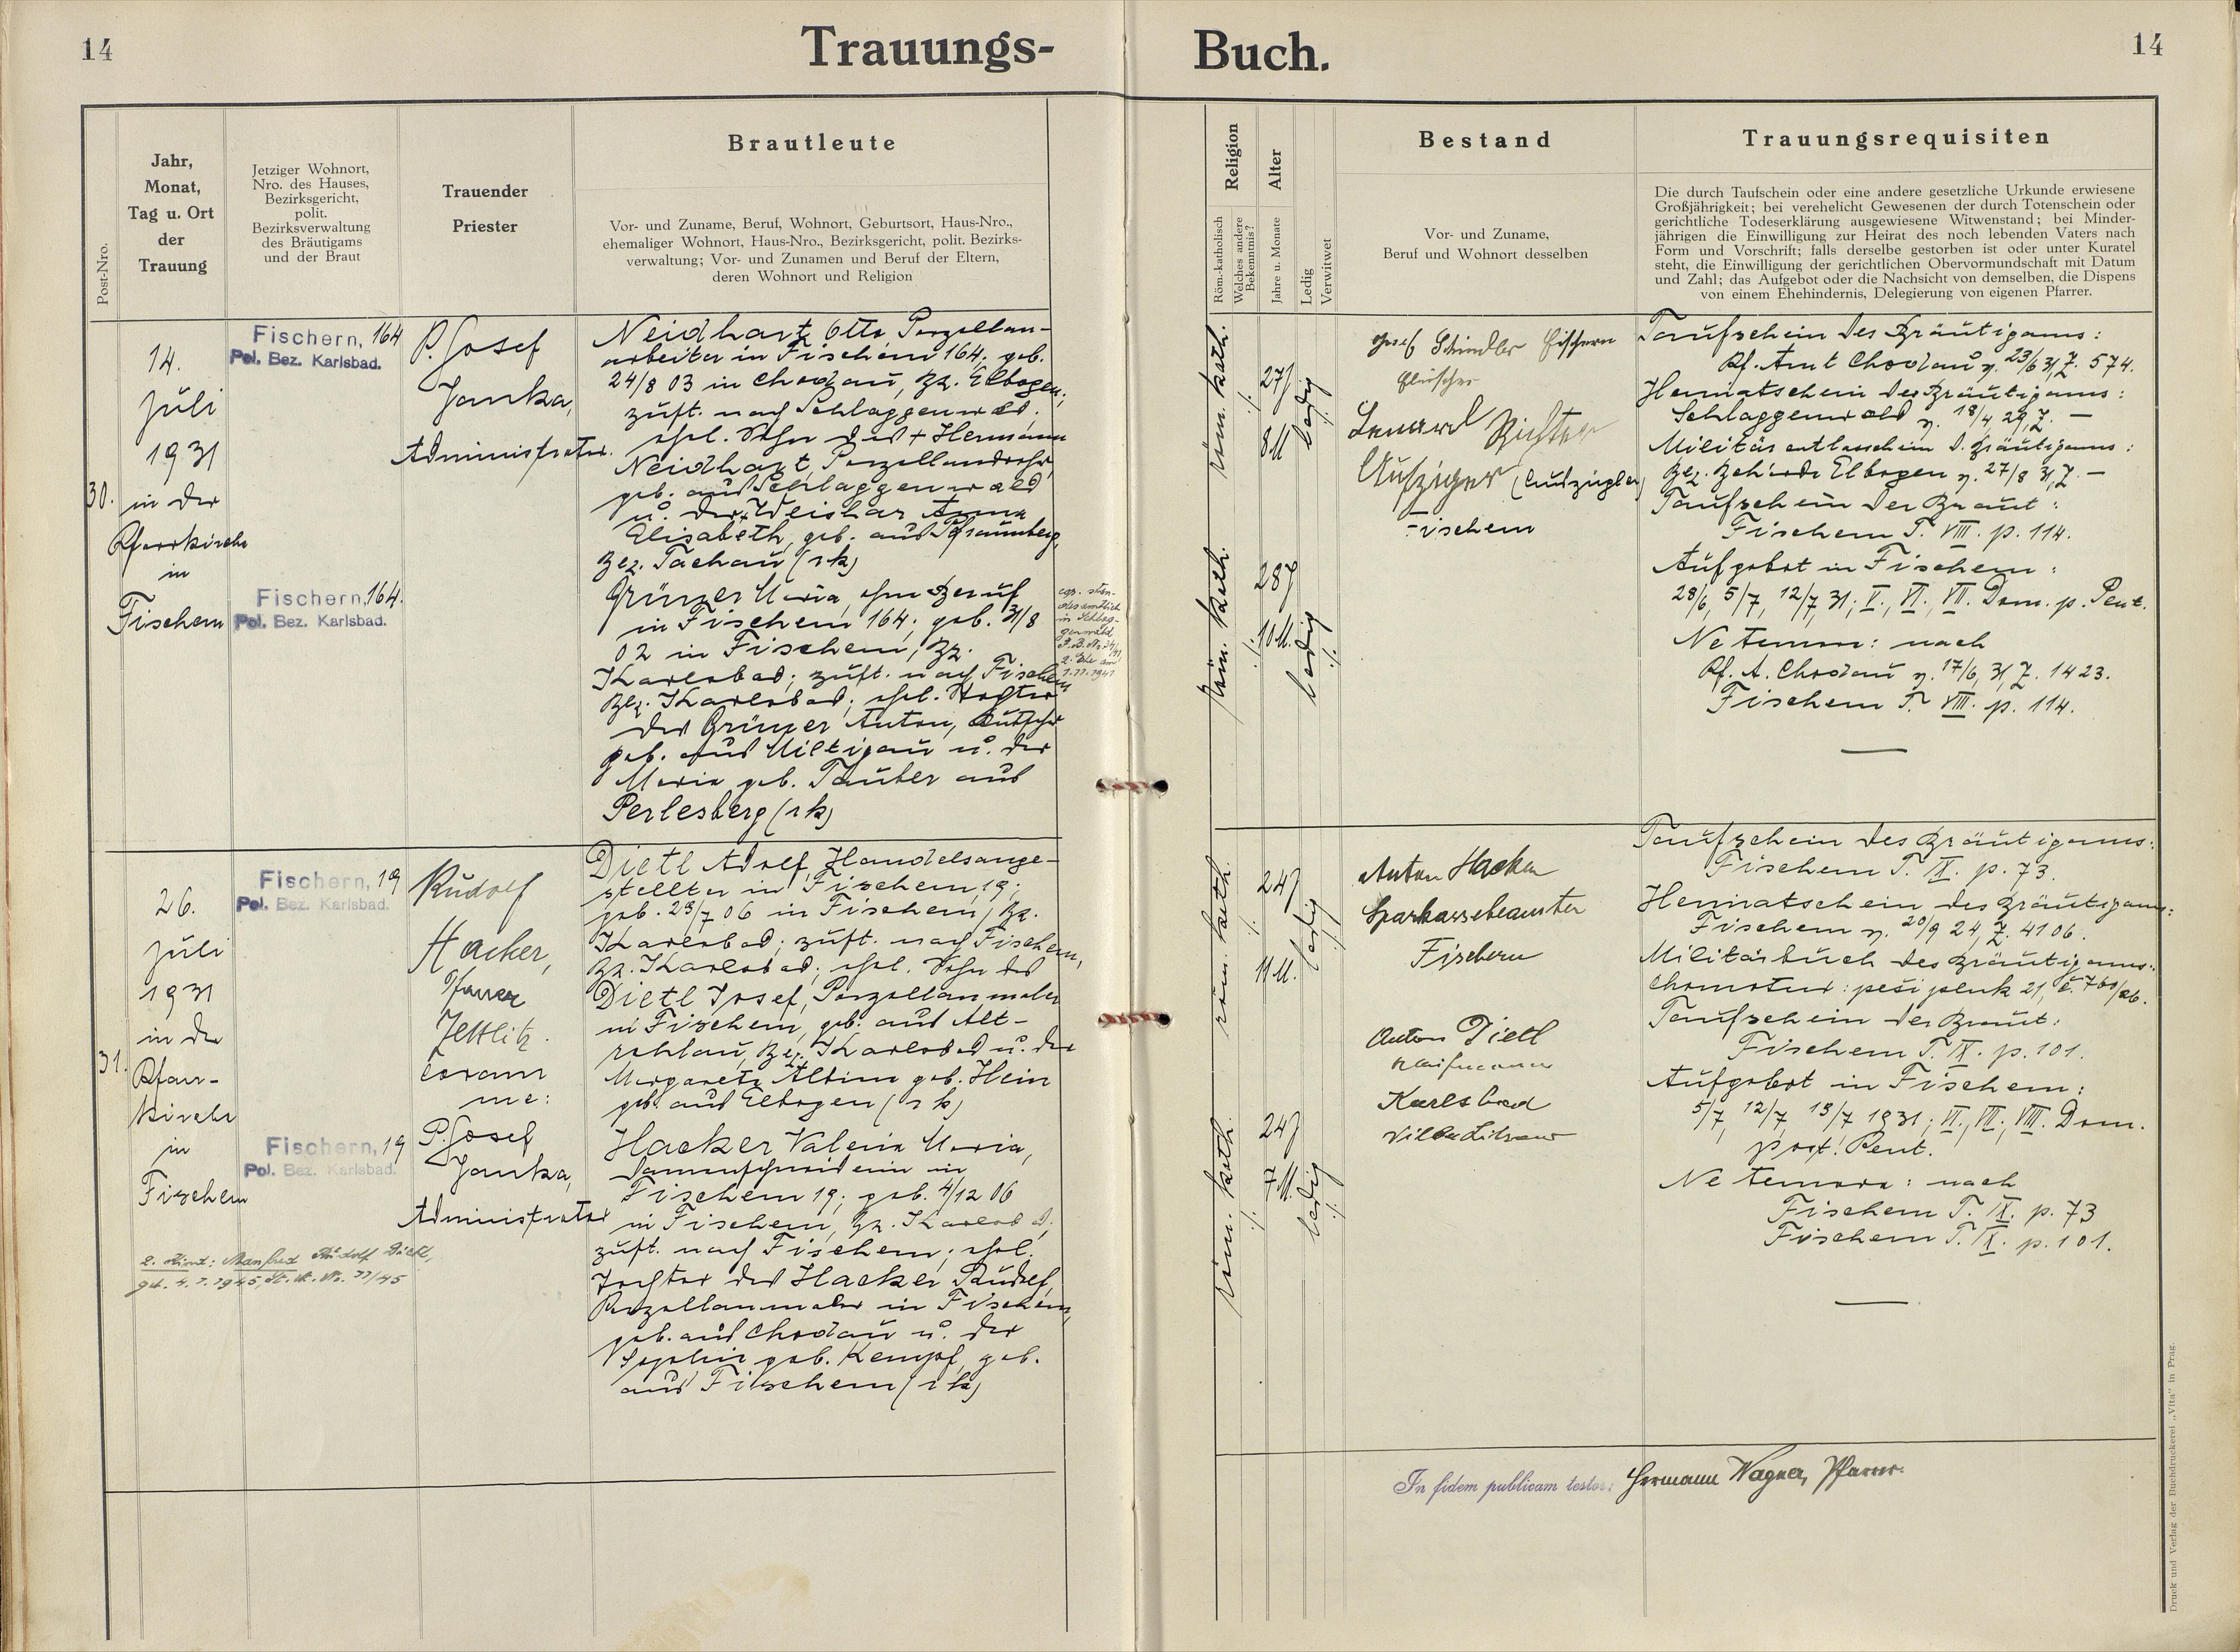 14
Trauungs-
Buch.
14
Post-Nro.
Jahr,
Monat,
Tag u. Ort
der
Trauung
Jetziger Wohnort,
Nro. des Hauses,
Bezirksgericht,
polit.
Bezirksverwaltung
des Bräutigams
und der Braut
Trauender
Priester
Brautleute
Vor- und Zuname, Beruf, Wohnort, Geburtsort, Haus-Nro.,
ehemaliger Wohnort, Haus-Nro., Bezirksgericht, polit. Bezirks-
verwaltung; Vor- und Zunamen und Beruf der Eltern,
deren Wohnort und Religion
Religion
Röm.-katholisch
Welches andere
Bekenntnis?
Alter
Jahre u. Monate
Ledig
Verwitwet
Bestand
Vor- und Zuname,
Beruf und Wohnort desselben
Trauungsrequisiten
Die durch Taufschein oder eine andere gesetzliche Urkunde erwiesene
Großjährigkeit; bei verehelicht Gewesenen der durch Totenschein oder
gerichtliche Todeserklärung ausgewiesene Witwenstand; bei Minder-
jährigen die Einwilligung zur Heirat des noch lebenden Vaters nach
Form und Vorschrift; falls derselbe gestorben ist oder unter Kuratel
steht, die Einwilligung der gerichtlichen Obervormundschaft mit Datum
und Zahl; das Aufgebot oder die Nachsicht von demselben, die Dispens
von einem Ehehindernis, Delegierung von eigenen Pfarrer.
30.
14.
Juli
1931
in der
Pfarrkirche
in
Fischern
Fischern, 164
Pol. Bez. Karlsbad.
Fischern, 164.
Pol. Bez. Karlsbad.
P. Josef
Janka,
Administrator.
Neidhart Otto Porzellan-
arbeiter in Fischern 164; geb.
24/8 03 in Chodau, Bz. Elbogen;
zust. nach Schlaggenwald;
ehel. Sohn des + Hermann
Neidhart, Porzellandreher
geb. aus Schlaggenwald
u. der + Weishar Anna
Elisabeth, geb. aus Pfraumberg,
Bez. Tachau (rk)
Grünzer Maria, ohne Beruf
in Fischern 164; geb. 31/8
02 in Fischern, Bz.
Karlsbad; zust. nach Fischern
Bez. Karlsbad; ehel. Tochter
des Grünzer Anton, Kutscher
geb. aus Miltigau u. der
Maria geb. Tauber aus
Perlesberg (rk)
2. Ehe am
1.11.1941
röm. kath.
27J
8M
ledig
röm. kath.
28J
10M.
ledig
Josef Schindler Fischern
Fleischer
Lenard Richter
Aufzieger
Fischern
Taufschein des Bräutigams:
Pf. Amt Chodau v. 23/6 31, Z. 574.
Heimatschein des Bräutigams:
Schlaggenwald v. 18/4 29, Z. —
Militärentlasschein d. Bräutigams:
Bez. Behörde Elbogen v. 27/8 31, Z. —
Taufschein der Braut:
Fischern T. VIII. p. 114.
Aufgebot in Fischern:
28/6, 5/7, 12/7 31; V., VI., VII. Dom. p. Pent.
Ne temere: nach
Pf. A. Chodau v. 17/6 31, Z. 1423.
Fischern T. VIII. p. 114.
31.
26.
Juli
1931
in der
Pfarr-
kirche
in
Fischern
Fischern, 19
Pol. Bez. Karlsbad.
Fischern, 19
Pol. Bez. Karlsbad.
Rudolf
Hacker,
Pfarrer
Zettlitz.
coram
me:
P. Josef
Janka,
Administrator
Dietl Adolf, Handelsange-
stellter in Fischern 19;
geb. 23/7 06 in Fischern, Bz.
Karlsbad; zust. nach Fischern,
Bz. Karlsbad; ehel. Sohn des
Dietl Josef, Porzellanmaler
in Fischern, geb. aus Alt-
rohlau, Bez. Karlsbad u. der
Margarete Albine geb. Hein
geb. aus Elbogen (rk)
Hacker Valerie Maria,
Damenschneiderin in
Fischern 19; geb. 4/12 06
in Fischern, Bz. Karlsbad;
zust. nach Fischern; ehel.
Tochter des Hacker Rudolf,
Porzellanmaler in Fischern,
geb. aus Chodau u. der
Sophie geb. Kempf, geb.
aus Fischern (rk)
2. Kind: Manfred Rudolf Dietl,
geb. 4.1.1945, St. A. Nr. 11/45
röm. kath.
24J
11M.
ledig
röm. kath.
24J
7M.
ledig
Anton Hacker
Sparkassebeamter
Fischern
Anton Dietl
Kaufmann
Karlsbad
Taufschein des Bräutigams:
Fischern T. IX. p. 73.
Heimatschein des Bräutigams:
Fischern v. 20/9 24, Z. 4106.
Militärbuch des Bräutigams:
Chomotov: pěší pluk 21, č. 760/26.
Taufschein der Braut:
Fischern T. IX. p. 101.
Aufgebot in Fischern:
5/7, 12/7, 19/7 1931; VI., VII., VIII. Dom.
post. Pent.
Ne temere: nach
Fischern T. IX. p. 73
Fischern T. IX. p. 101.
In fidem publicam testor: Hermann Wagner, Pfarrer.
Druck und Verlag der Buchdruckerei „Vita" in Prag.